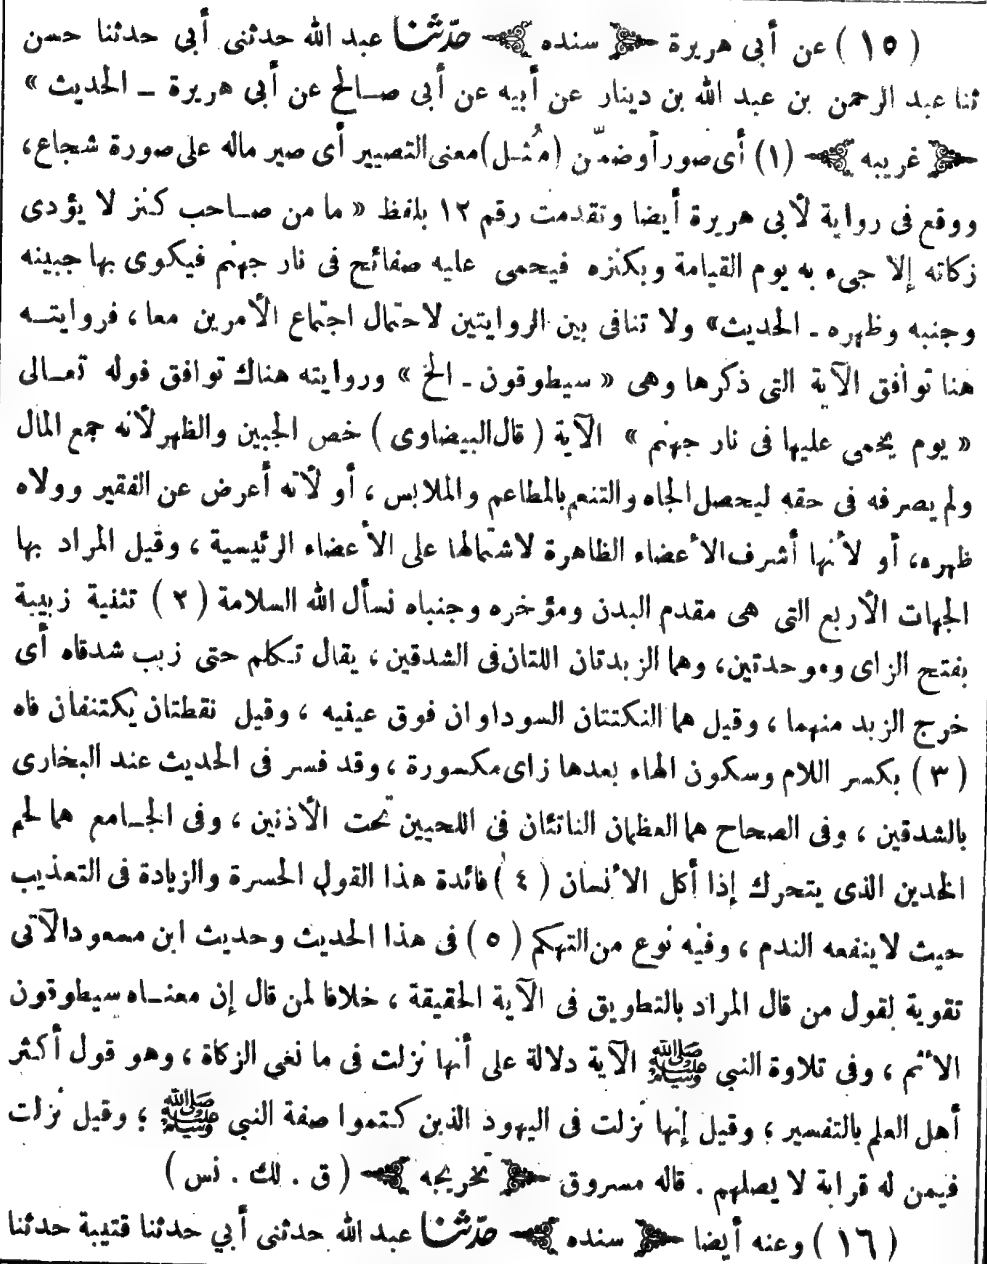 ( ١٥ ) عن أبى هريرة ﴿ سنده ﴾ حدّثنا عبد الله حدثنى أبى حدثنا حسن
ثنا عبد الرحمن بن عبد الله بن دينار عن أبيه عن أبى صـالح عن أبى هريرة ـ الحديث »
﴿ غريبه ﴾ (١) أى صور أوضمّن (مُثـل) معنى التصيير أى صير ماله على صورة شجاع،
ووقع فى رواية لأبى هريرة أيضا وتقدمت رقم ١٢ بلفظ « ما من صـاحب كنز لا يؤدى
زكاته إلا جىء به يوم القيامة وبكنزه فيحمى عليه صفائح فى نار جهنم فيكوى بها جبينه
وجنبه وظهره ـ الحديث» ولا تنافى بين الروايتين لاحتمال اجتماع الأمرين معا ، فروايتــه
هنا توافق الآية التى ذكرها وهى « سيطوقون ـ الخ » وروايته هناك توافق قوله تعـالى
« يوم يحمى عليها فى نار جهنم » الآية ( قال البيضاوى ) خص الجبين والظهر لأنه جمع المال
ولم يصرفه فى حقه ليحصل الجاه والتنعم بالمطاعم والملابس ، أو لأنه أعرض عن الفقير وولاه
ظهره، أو لأنها أشرف الأعضاء الظاهرة لاشتمالها على الأعضاء الرئيسية ، وقيل المراد بها
الجهات الأربع التى هى مقدم البدن ومؤخره وجنباه نسأل الله السلامة ( ٢ ) تثنية زبيبة
بفتح الزاى وموحدتين، وهما الزبدتان اللتان فى الشدقين ، يقال تـكلم حتى زبب شدقاه أى
خرج الزبد منهما ، وقيل هما النكتتان السوداوان فوق عينيه ، وقيل نقطتان يكتنفان فاه
( ٣ ) بكسر اللام وسكون الهاء بعدها زاى مكسورة ، وقد فسر فى الحديث عند البخارى
بالشدقين ، وفى الصحاح هما العظمان الناتئان فى اللحيين تحت الأذنين ، وفى الجـامع هما لحم
الخدين الذى يتحرك إذا أكل الأنسان ( ٤ ) فائدة هذا القول الحسرة والزيادة فى التعذيب
حيث لاينفعه الندم ، وفيه نوع من التهكم ( ٥ ) فى هذا الحديث وحديث ابن مسعود الآتى
تقوية لقول من قال المراد بالتطويق فى الآية الحقيقة ، خلافا لمن قال إن معنـاه سيطوقون
الأثم ، وفى تلاوة النبى ﷺ الآية دلالة على أنها نزلت فى ما نعي الزكاة ، وهو قول أكثر
أهل العلم بالتفسير ، وقيل إنها نزلت فى اليهود الذين كـتموا صفة النبى ﷺ ؛ وقيل نزلت
فيمن له قرابة لا يصلهم . قاله مسروق ﴿ تخريجه ﴾ ( ق . لك . نس )
( ١٦ ) وعنه أيضا ﴿ سنده ﴾ حدّثنا عبد الله حدثنى أبي حدثنا قتيبة حدثنا